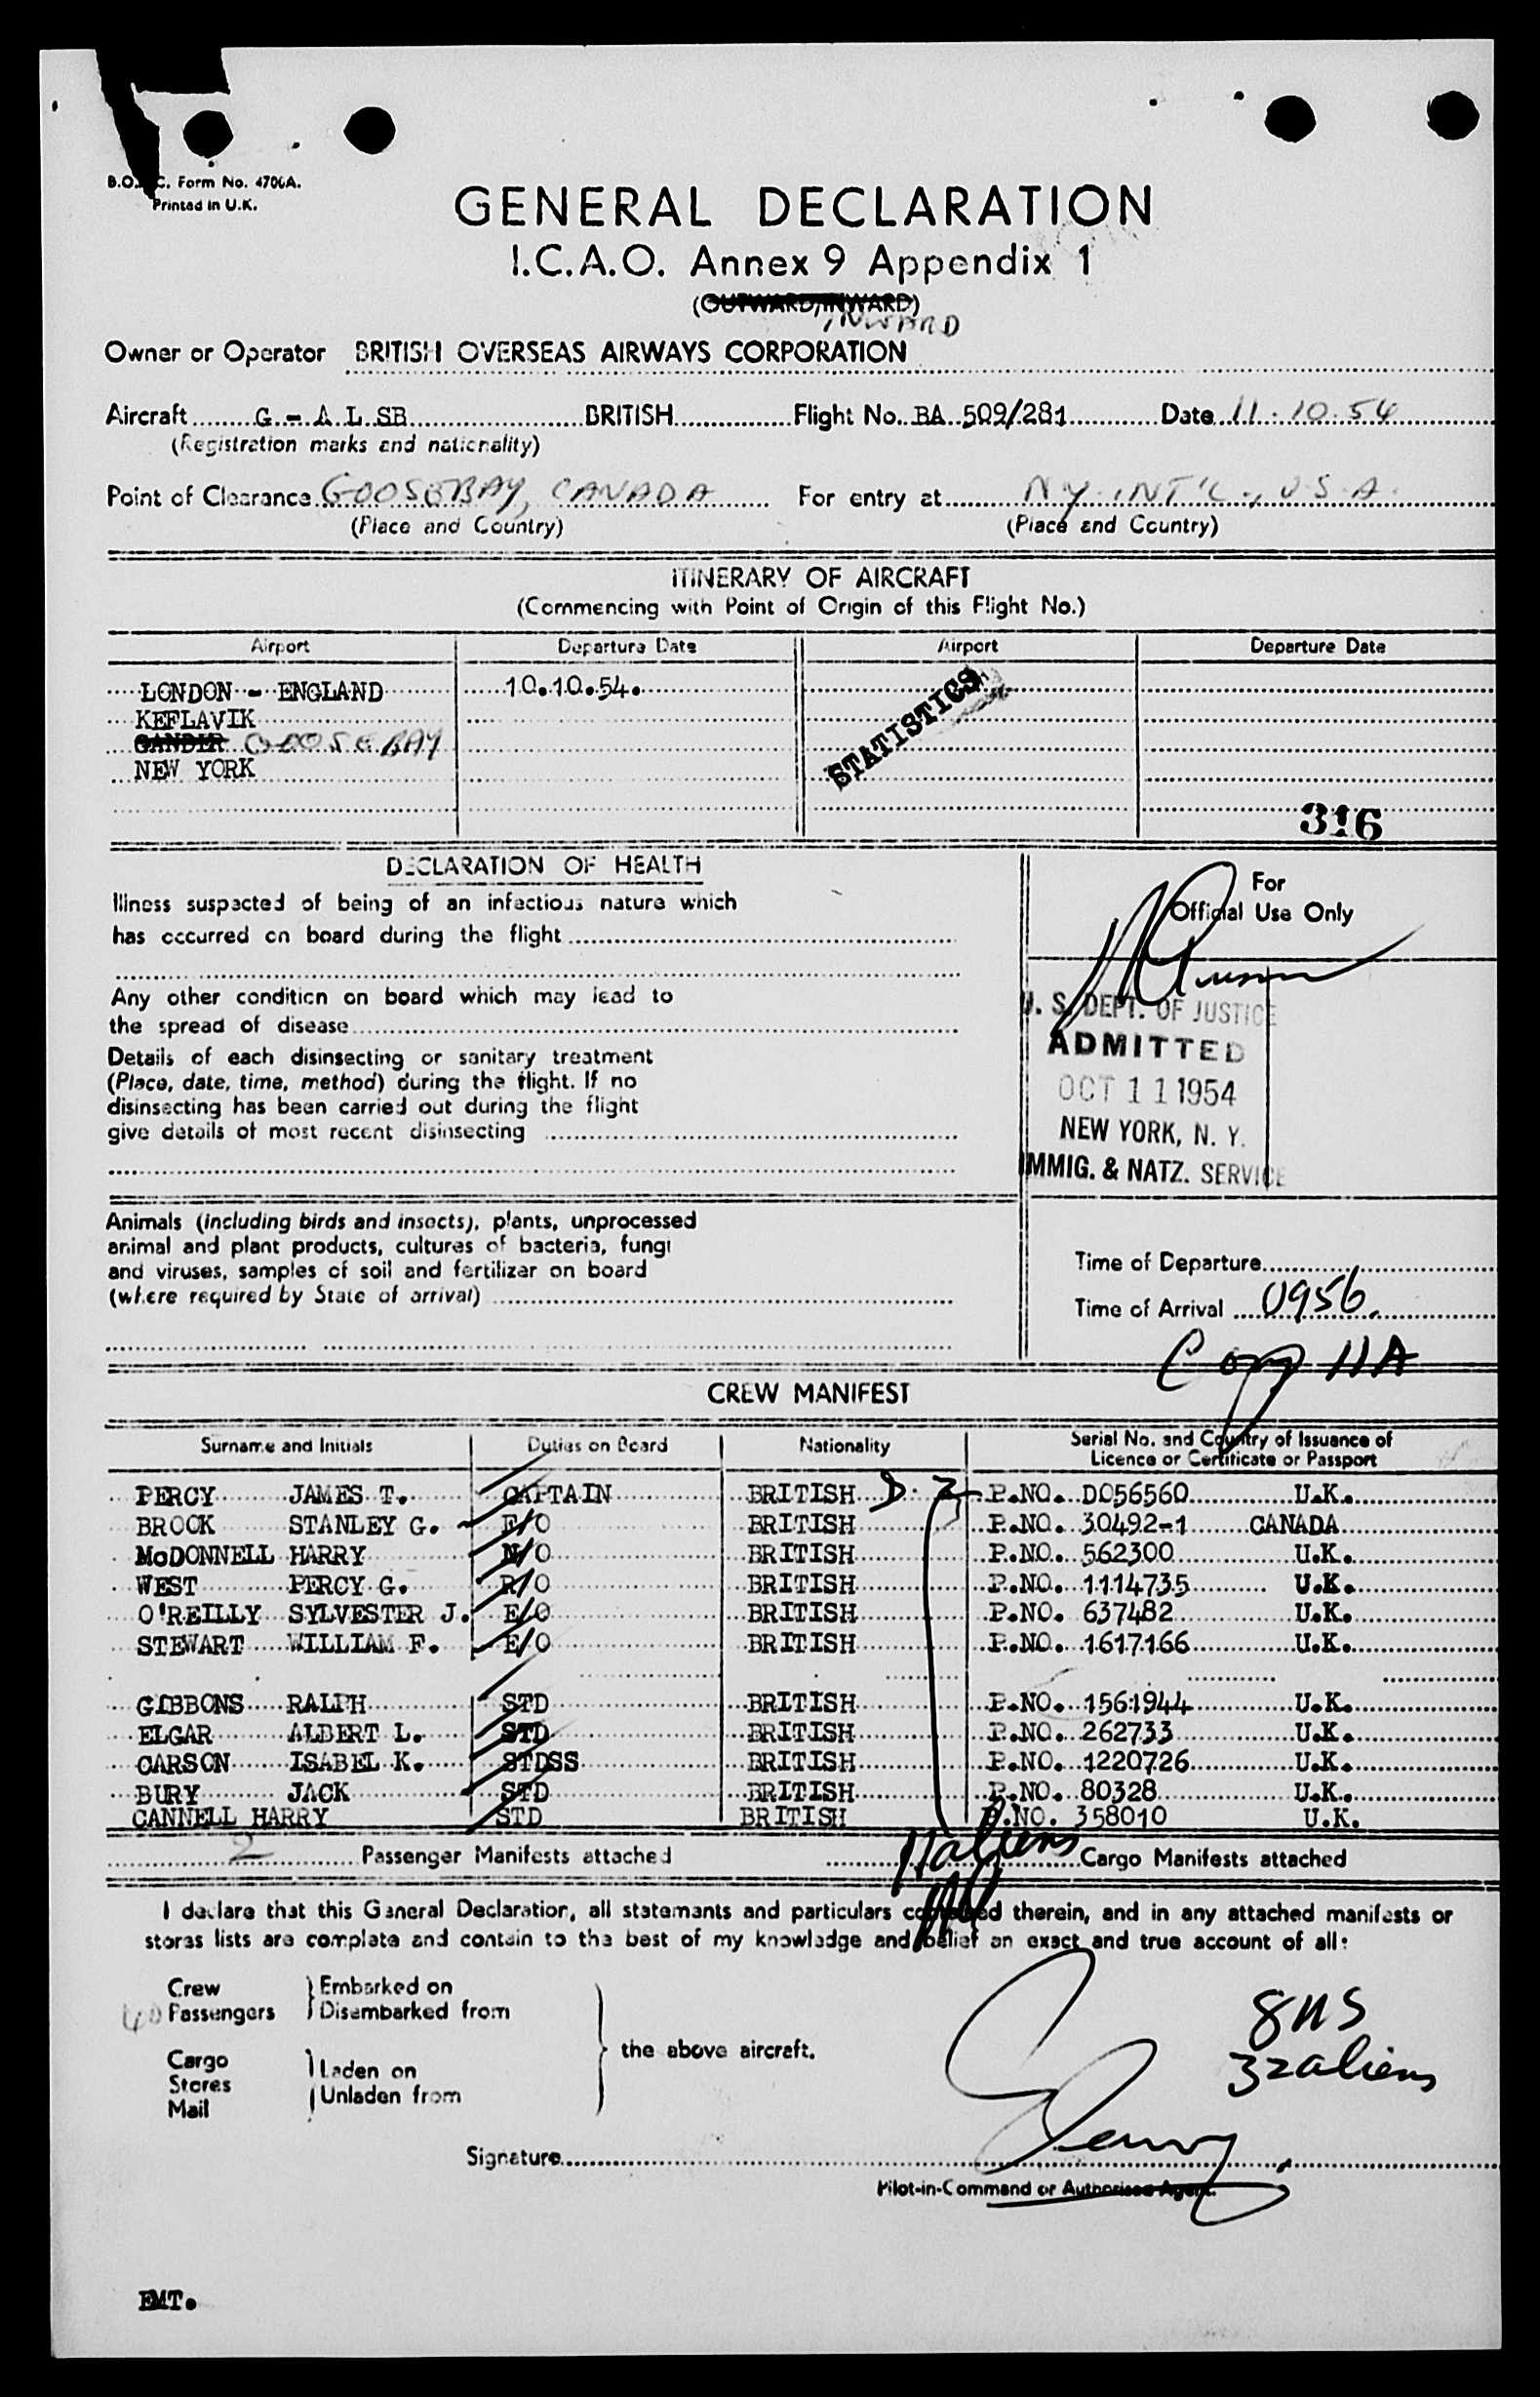 B.O. C. Form No. 4700A.
Printed in U.K.
GENERAL DECLARATION
I.C.A.O. Annex 9 Appendix 1
(OUTWARD/INWARD)
INWARD
Owner or Operator BRITISH OVERSEAS AIRWAYS CORPORATION
Aircraft G - A L SB BRITISH Flight No. BA 509/281 Date 11.10.54
(Registration marks and nationality)
Point of Clearance GOOSEBAY, CANADA For entry at NY. INT'L., U.S.A.
(Place and Country) (Place and Country)
ITINERARY OF AIRCRAFT
(Commencing with Point of Origin of this Flight No.)
Airport Departure Date Airport Departure Date
LONDON - ENGLAND 10.10.54.
KEFLAVIK
GANDER GOOSE BAY
NEW YORK
STATISTICS
316
DECLARATION OF HEALTH
Illness suspected of being of an infectious nature which
has occurred on board during the flight
Any other condition on board which may lead to
the spread of disease
Details of each disinsecting or sanitary treatment
(Place, date, time, method) during the flight. If no
disinsecting has been carried out during the flight
give details of most recent disinsecting
For
Official Use Only
U. S. DEPT. OF JUSTICE
ADMITTED
OCT 11 1954
NEW YORK, N. Y.
IMMIG. & NATZ. SERVICE
Animals (including birds and insects), plants, unprocessed
animal and plant products, cultures of bacteria, fungi
and viruses, samples of soil and fertilizer on board
(where required by State of arrival)
Time of Departure
Time of Arrival 0956
CREW MANIFEST
Surname and Initials Duties on Board Nationality Serial No. and Country of Issuance of
Licence or Certificate or Passport
PERCY JAMES T. CAPTAIN BRITISH D. 2 P.NO. D056560 U.K.
BROOK STANLEY G. F/O BRITISH P.NO. 30492-1 CANADA
McDONNELL HARRY N/O BRITISH P.NO. 562300 U.K.
WEST PERCY G. R/O BRITISH P.NO. 1114735 U.K.
O'REILLY SYLVESTER J. E/O BRITISH P.NO. 637482 U.K.
STEWART WILLIAM F. E/O BRITISH P.NO. 1617166 U.K.
GIBBONS RALPH STD BRITISH P.NO. 1561944 U.K.
ELGAR ALBERT L. STD BRITISH P.NO. 262733 U.K.
CARSON ISABEL K. STDSS BRITISH P.NO. 1220726 U.K.
BURY JACK STD BRITISH P.NO. 80328 U.K.
CANNELL HARRY STD BRITISH P.NO. 358010 U.K.
2 Passenger Manifests attached Cargo Manifests attached
11 aliens
I declare that this General Declaration, all statements and particulars contained therein, and in any attached manifests or
stores lists are complete and contain to the best of my knowledge and belief an exact and true account of all:
Crew Embarked on
40 Passengers Disembarked from
the above aircraft.
Cargo Laden on
Stores Unladen from
Mail
8 US
32 aliens
Signature
Pilot-in-Command or Authorised Agent.
EMT.